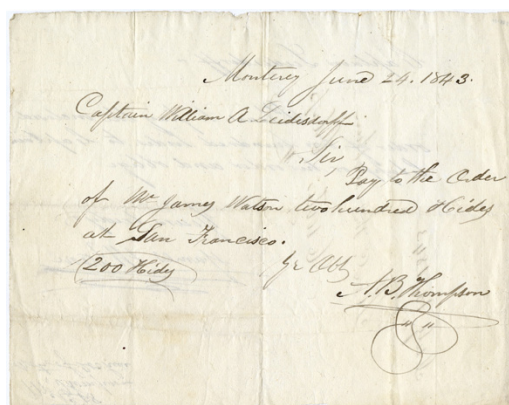 Monterey June 24. 1843.
Captain William A Leidesdorff
Sir,
Pay to the Order
of Mr James Watson two hundred Hides
at San Francisco.
(200 Hides)
A. B. Thompson